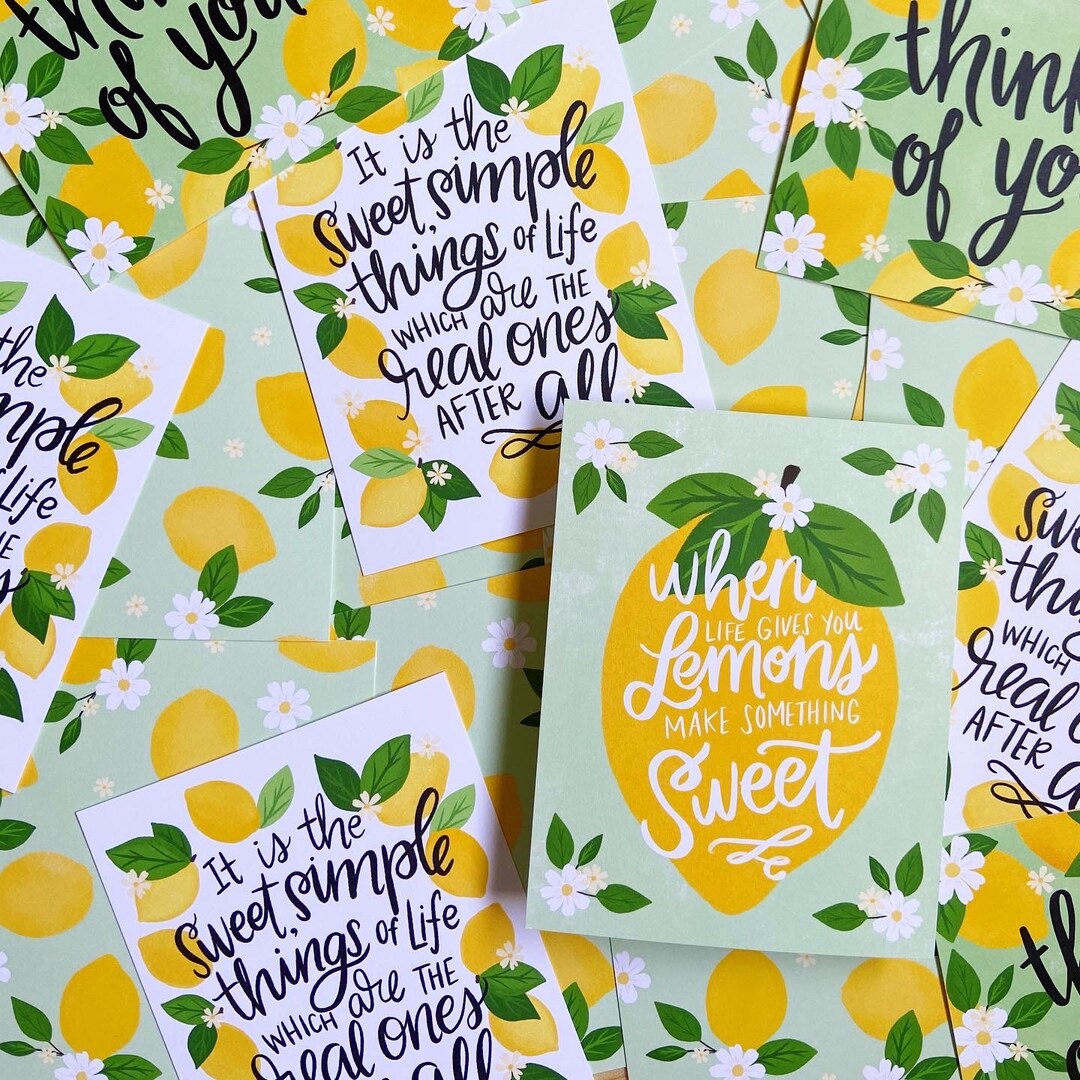 thin
of you
It is the
sweet, simple
things of Life
WHICH are THE
real ones
AFTER all.
think
of yo
the
mple
Life
when
LIFE GIVES YOU
Lemons
MAKE SOMETHING
Sweet
swe
thi
WHICH
real
AFTER
It is the
sweet, simple
things of Life
WHICH are THE
real ones
all
th